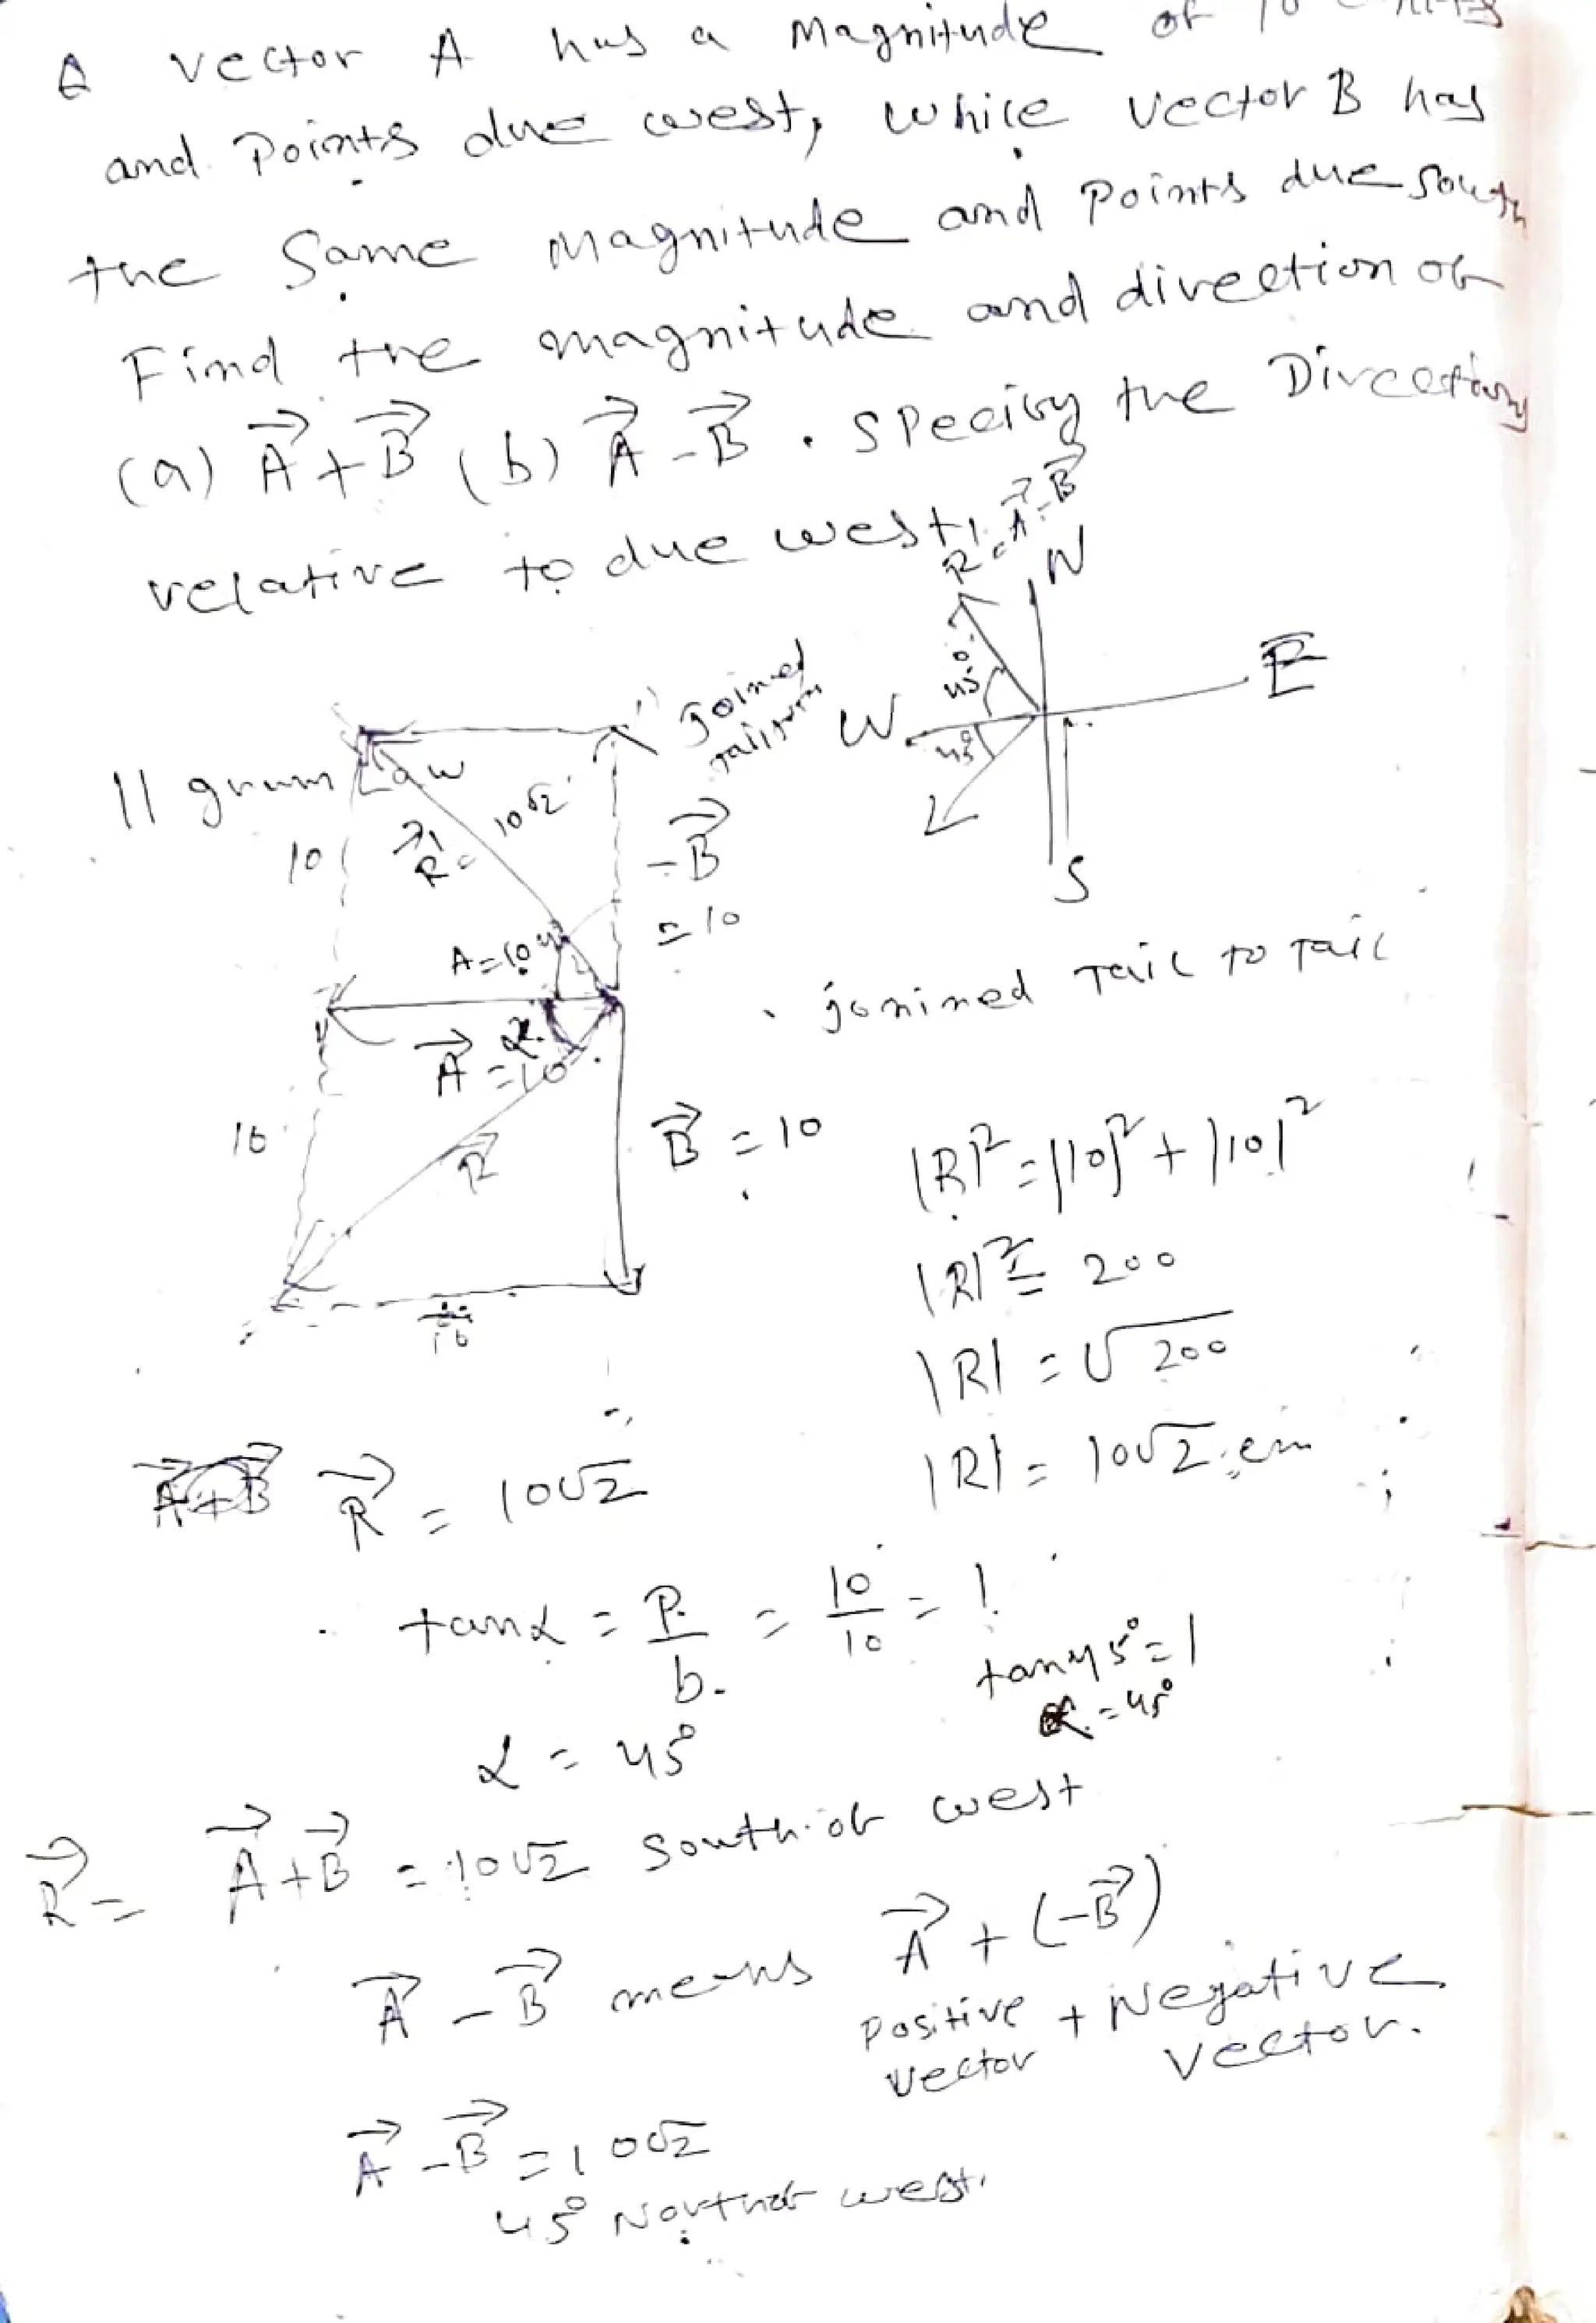 A vector A has a Magnitude of 10
and Points due west, While Vector B has
the Same Magnitude and Points due South
Find the magnitude and direction of
(a) A⃗ + B⃗ (b) A⃗ - B⃗ . Specify the Direction
relative to due west.
R = A⃗ - B⃗
N
E
W
S
45°
45°
Joined
|| gram Law
10
R⃗ =
10√2
-B⃗
= 10
A = 10
joinined Tail to Tail
A⃗ = 10
α
10
R⃗
B⃗ = 10
10
|R|² = |10|² + |10|²
|R|² = 200
|R| = √200
|R| = 10√2 cm
R⃗ = 10√2
tanα = P/b = 10/10 = 1
tan45° = 1
α = 45°
α = 45°
R⃗ = A⃗ + B⃗ = 10√2 South of west
A⃗ - B⃗ means A⃗ + (-B⃗)
Positive + Negative
Vector Vector.
A⃗ - B⃗ = 10√2
45° North of west.